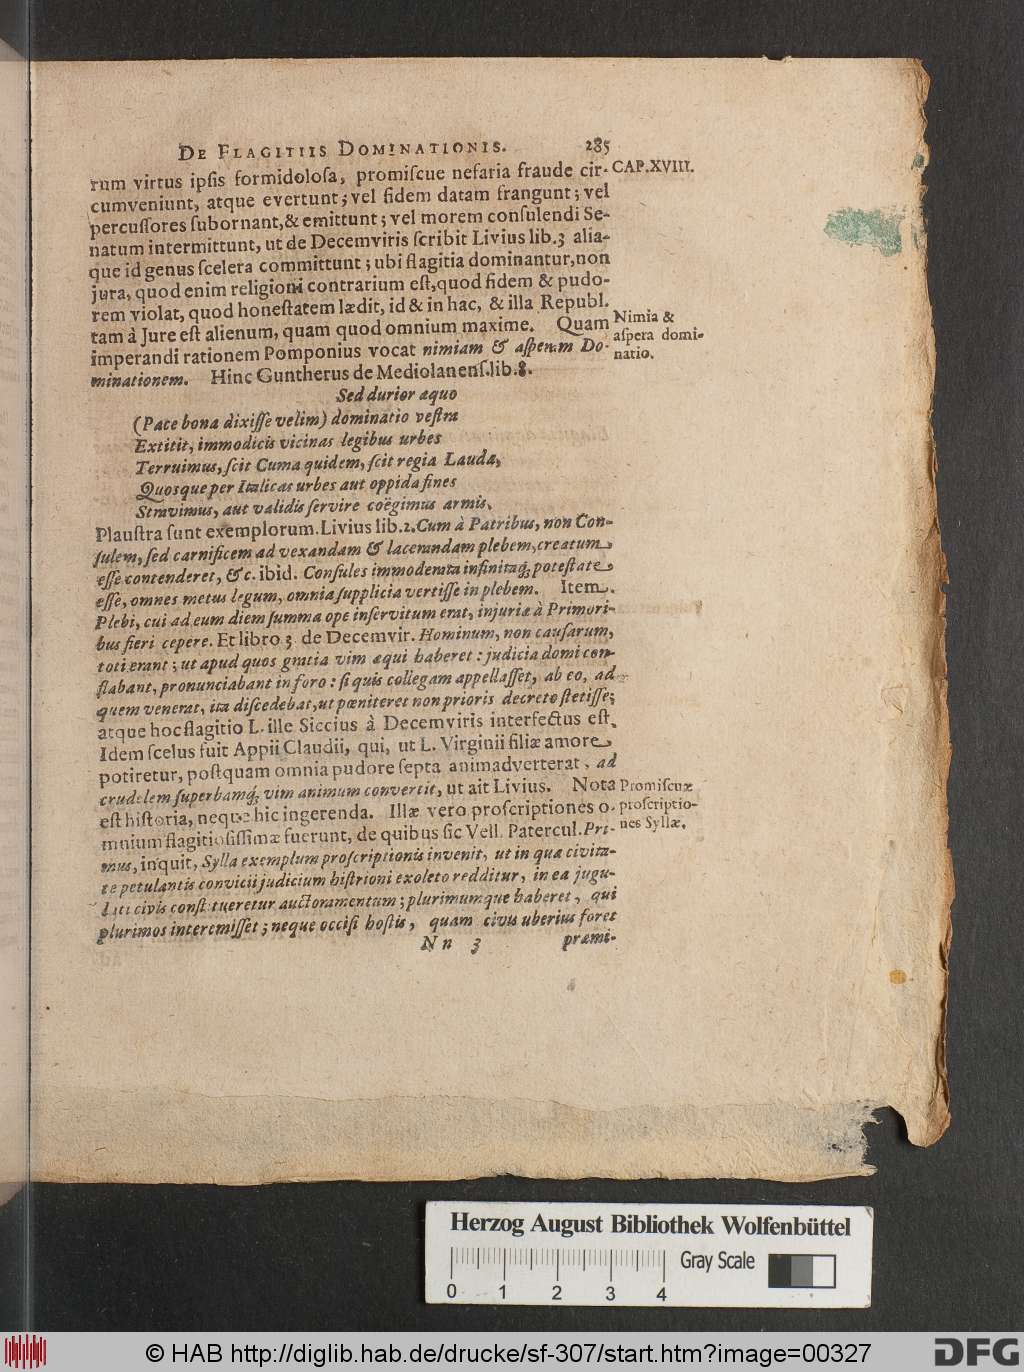 DE FLAGITIIS DOMINATIONIS. 285
CAP. XVIII.
rum virtus ipſis formidoloſa, promiſcue nefaria fraude cir-
cumveniunt, atque evertunt; vel fidem datam frangunt; vel
percuſſores ſubornant, & emittunt; vel morem conſulendi Se-
natum intermittunt, ut de Decemviris ſcribit Livius lib.3 alia-
que id genus ſcelera committunt; ubi flagitia dominantur, non
jura, quod enim religioni contrarium eſt, quod fidem & pudo-
rem violat, quod honeſtatem lædit, id & in hac, & illa Republ.
tam à Jure eſt alienum, quam quod omnium maxime. Quam
imperandi rationem Pomponius vocat nimiam & aſperam Do-
minationem. Hinc Guntherus de Mediolanenſ. lib. 8.
Nimia &
aſpera domi-
natio.
Sed durior æquo
(Pace bona dixiſſe velim) dominatio veſtra
Extitit, immodicis vicinas legibus urbes
Terruimus, ſcit Cuma quidem, ſcit regia Lauda,
Quosque per Italicas urbes aut oppida fines
Stravimus, aut validis ſervire coëgimus armis.
Plauſtra ſunt exemplorum. Livius lib.2. Cum à Patribus, non Con-
ſulem, ſed carnificem ad vexandam & lacerandam plebem, creatum
eſſe contenderet, &c. ibid. Conſules immoderata infinitaq; poteſtate
eſſe, omnes metus legum, omnia ſupplicia vertiſſe in plebem. Item.
Plebi, cui ad eum diem ſumma ope inſervitum erat, injuriæ à Primori-
bus fieri cepere. Et libro 3 de Decemvir. Hominum, non cauſarum,
toti erant; ut apud quos gratia vim æqui haberet: judicia domi con-
flabant, pronunciabant in foro: ſi quis collegam appellaſſet, ab eo, ad
quem venerat, ita diſcedebat, ut pœniteret non prioris decreto ſtetiſſe;
atque hoc flagitio L. ille Siccius à Decemviris interfectus eſt.
Idem ſcelus fuit Appii Claudii, qui, ut L. Virginii filiæ amore
potiretur, poſtquam omnia pudore ſepta animadverterat, ad
crudelem ſuperbamq; vim animum convertit, ut ait Livius. Nota
eſt hiſtoria, neque hic ingerenda. Illæ vero proſcriptiones o-
mnium flagitioſiſſimæ fuerunt, de quibus ſic Vell. Patercul. Pri-
mus, inquit, Sylla exemplum proſcriptionis invenit, ut in qua civita-
te petulantis convicii judicium hiſtrioni exoleto redditur, in ea jugu-
lati civis conſtitueretur auctoramentum; plurimumque haberet, qui
plurimos interemiſſet; neque occiſi hoſtis, quam civis uberius foret
Promiſcuæ
proſcriptio-
nes Syllæ.
N n 3 præmi-
Herzog August Bibliothek Wolfenbüttel
Gray Scale
0 1 2 3 4
© HAB http://diglib.hab.de/drucke/sf-307/start.htm?image=00327
DFG